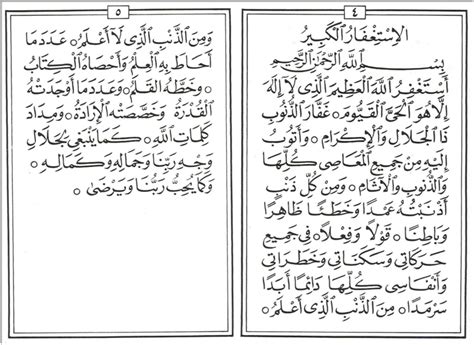 ٤
الِاسْتِغْفَارُ الْكَبِيرُ
بِسْمِ اللَّهِ الرَّحْمَٰنِ الرَّحِيمِ
أَسْتَغْفِرُ اللَّهَ الْعَظِيمَ الَّذِي لَا إِلَٰهَ
إِلَّا هُوَ الْحَيَّ الْقَيُّومَ ۞ غَفَّارَ الذُّنُوبِ
ذَا الْجَلَالِ وَالْإِكْرَامِ ۞ وَأَتُوبُ
إِلَيْهِ مِنْ جَمِيعِ الْمَعَاصِي كُلِّهَا
وَالذُّنُوبِ وَالْآثَامِ ۞ وَمِنْ كُلِّ ذَنْبٍ
أَذْنَبْتُهُ عَمْدًا وَخَطَئًا ظَاهِرًا
وَبَاطِنًا ۞ قَوْلًا وَفِعْلًا ۞ فِي جَمِيعِ
حَرَكَاتِي وَسَكَنَاتِي وَخَطَرَاتِي
وَأَنْفَاسِي كُلِّهَا دَائِمًا أَبَدًا
سَرْمَدًا ۞ مِنَ الذَّنْبِ الَّذِي أَعْلَمُ ۞
٥
وَمِنَ الذَّنْبِ الَّذِي لَا أَعْلَمُ ۞ عَدَدَ مَا
أَحَاطَ بِهِ الْعِلْمُ ۞ وَأَحْصَاهُ الْكِتَابُ
۞ وَخَطَّهُ الْقَلَمُ ۞ وَعَدَدَ مَا أَوْجَدَتْهُ
الْقُدْرَةُ ۞ وَخَصَّصَتْهُ الْإِرَادَةُ ۞ وَمِدَادَ
كَلِمَاتِ اللَّهِ ۞ كَمَا يَنْبَغِي لِجَلَالِ
وَجْهِ رَبِّنَا وَجَمَالِهِ وَكَمَالِهِ ۞
وَكَمَا يُحِبُّ رَبُّنَا وَيَرْضَىٰ ۞